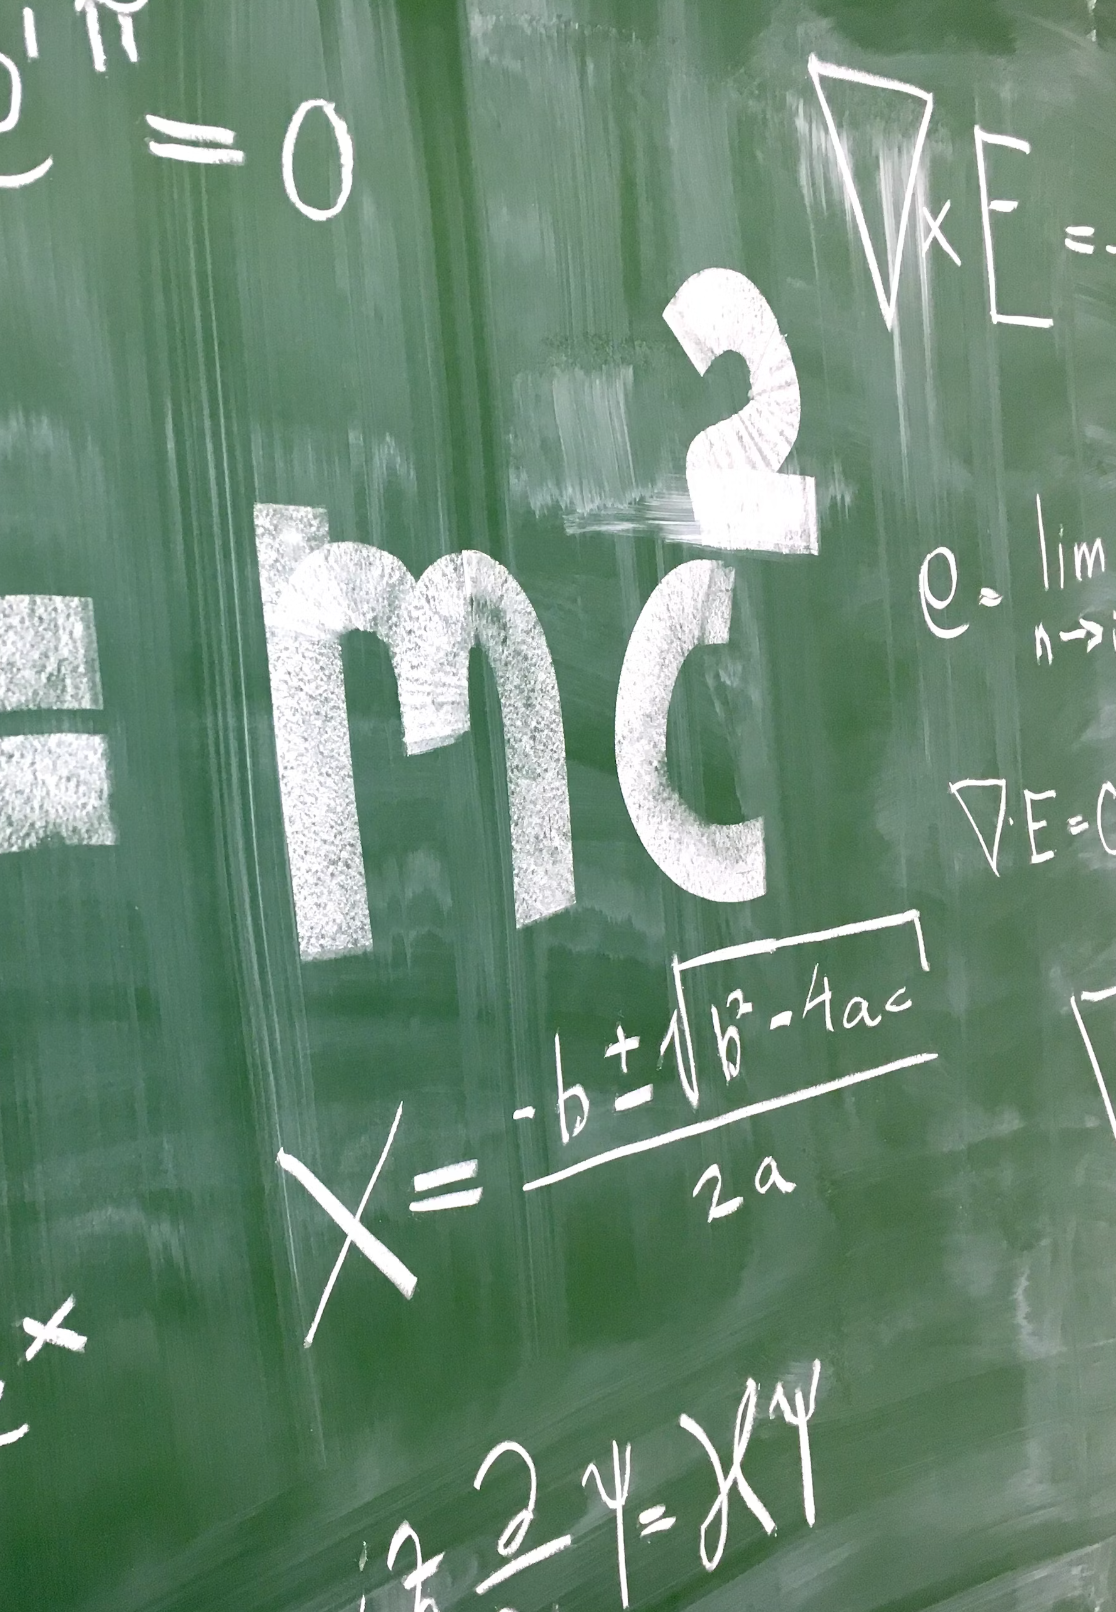 e^iπ = 0
∇×E = -
= mc²
e = lim
n→
∇·E = 0
x = (-b ± √(b² - 4ac)) / 2a
e^x
iħ ∂ ψ = ℋψ